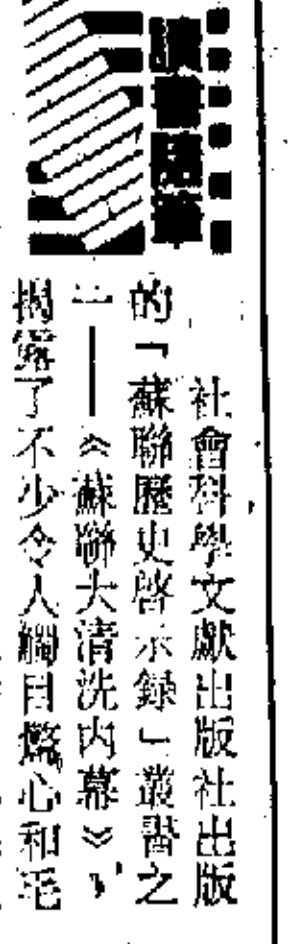 讀書隨筆
社會科學文獻出版社出版
的「蘇聯歷史啓示録」叢書之
一——《蘇聯大清洗内幕》，
揭露了不少令人觸目驚心和毛